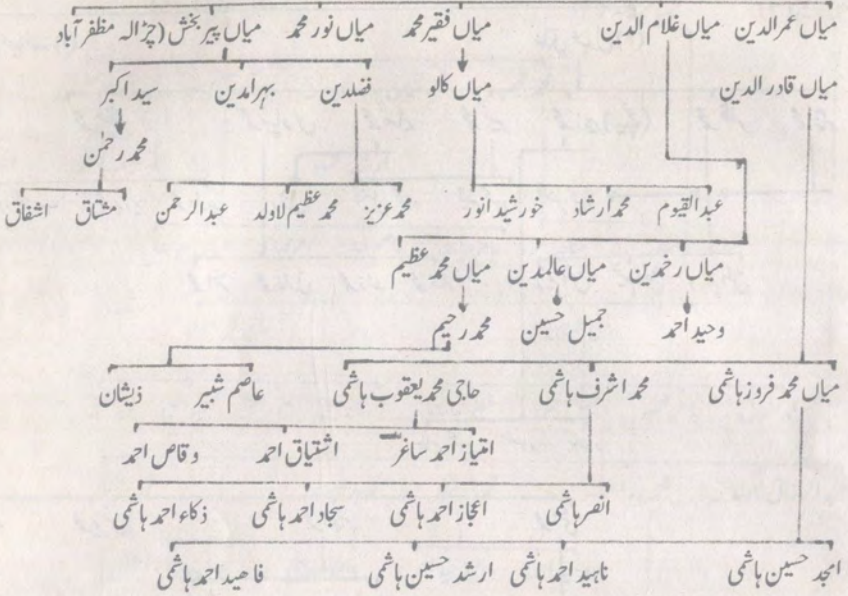 میاں عمرالدین میاں غلام الدین میاں فقیر محمد میاں نور محمد میاں پیر بخش (چڑالہ مظفر آباد
میاں قادر الدین میاں کالو فضلدین بہرامدین سید اکبر
محمد رحمٰن
عبدالقیوم محمد ارشاد خورشید انور محمد عزیز محمد عظیم لاولد عبدالرحمن مشتاق اشفاق
میاں رخمدین میاں عالمدین میاں محمد عظیم
وحید احمد جمیل حسین محمد رحیم
میاں محمد فروز ہاشمی محمد اشرف ہاشمی حاجی محمد یعقوب ہاشمی عاصم شبیر ذیشان
امتیاز احمد ساغر اشتیاق احمد وقاص احمد
انصر ہاشمی اعجاز احمد ہاشمی سجاد احمد ہاشمی ذکاء احمد ہاشمی
امجد حسین ہاشمی ناہید احمد ہاشمی ارشد حسین ہاشمی فاھید احمد ہاشمی